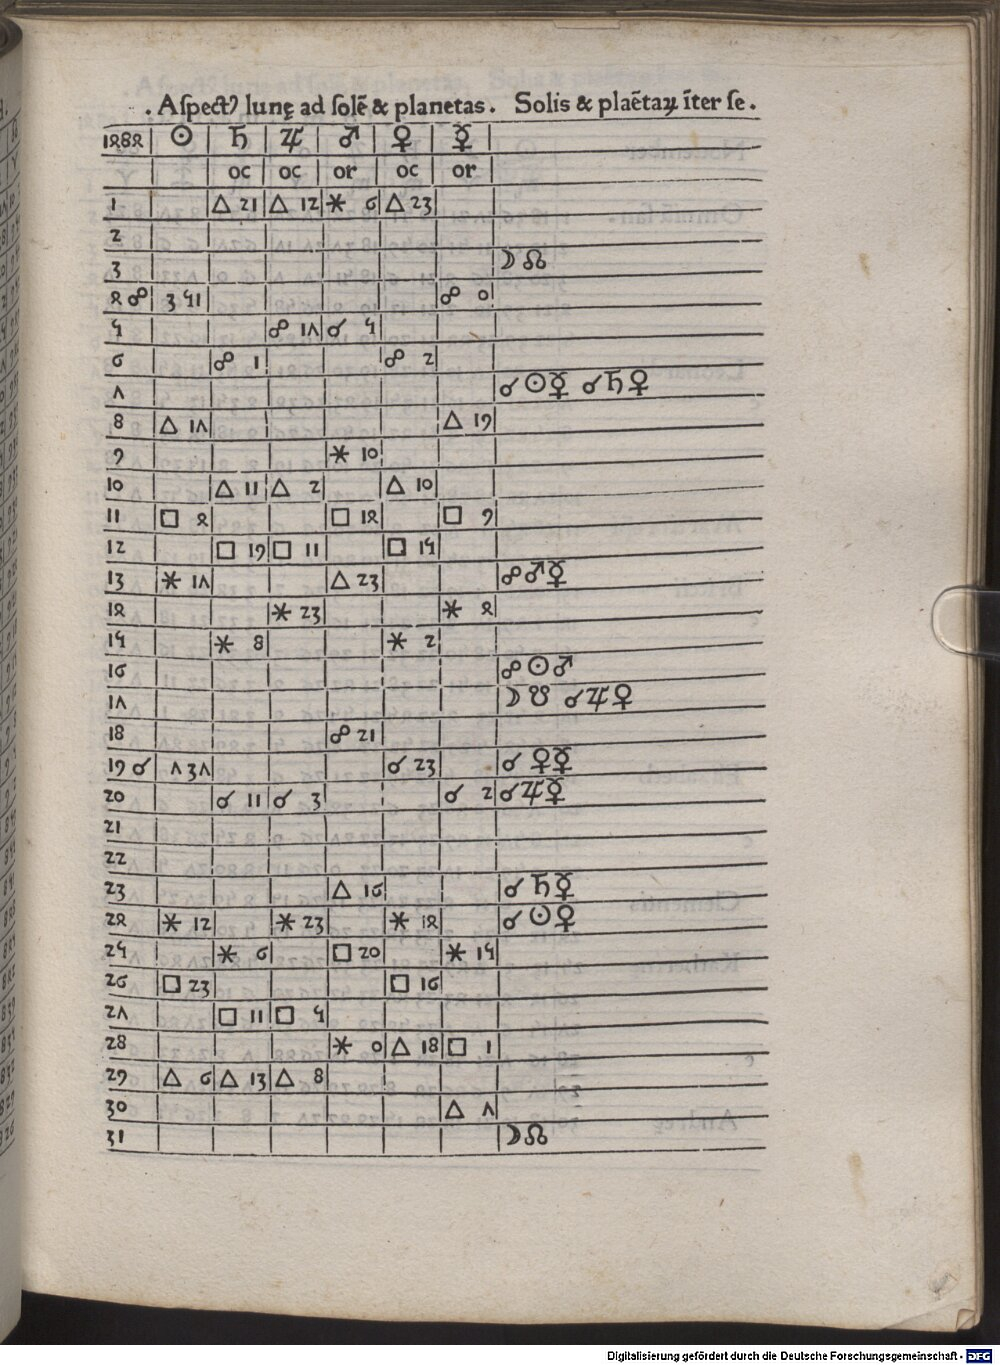 . Aſpectꝰ lunę ad ſolē & planetas . Solis & plaētaꝝ īter ſe .
1484 ☉ ♄ ♃ ♂ ♀ ☿
oc oc or oc or
1 △ 21 △ 12 ⚹ 6 △ 23
2
3 ☽ ☊
4 ☍ 3 51 ☍ 0
5 ☍ 17 ☌ 5
6 ☍ 1 ☍ 2
7 ☌ ☉ ☿ ☌ ♄ ♀
8 △ 17 △ 19
9 ⚹ 10
10 △ 11 △ 2 △ 10
11 □ 4 □ 14 □ 9
12 □ 19 □ 11 □ 15
13 ⚹ 17 △ 23 ☍ ♂ ☿
14 ⚹ 23 ⚹ 4
15 ⚹ 8 ⚹ 2
16 ☍ ☉ ♂
17 ☽ ☋ ☌ ♃ ♀
18 ☍ 21
19 ☌ 7 37 ☌ 23 ☌ ♀ ☿
20 ☌ 11 ☌ 3 ☌ 2 ☌ ♃ ☿
21
22
23 △ 16 ☌ ♄ ☿
24 ⚹ 12 ⚹ 23 ⚹ 14 ☌ ☉ ♀
25 ⚹ 6 □ 20 ⚹ 15
26 □ 23 □ 16
27 □ 11 □ 5
28 ⚹ 0 △ 18 □ 1
29 △ 6 △ 13 △ 8
30 △ 7
31 ☽ ☊
Digitalisierung gefördert durch die Deutsche Forschungsgemeinschaft - DFG